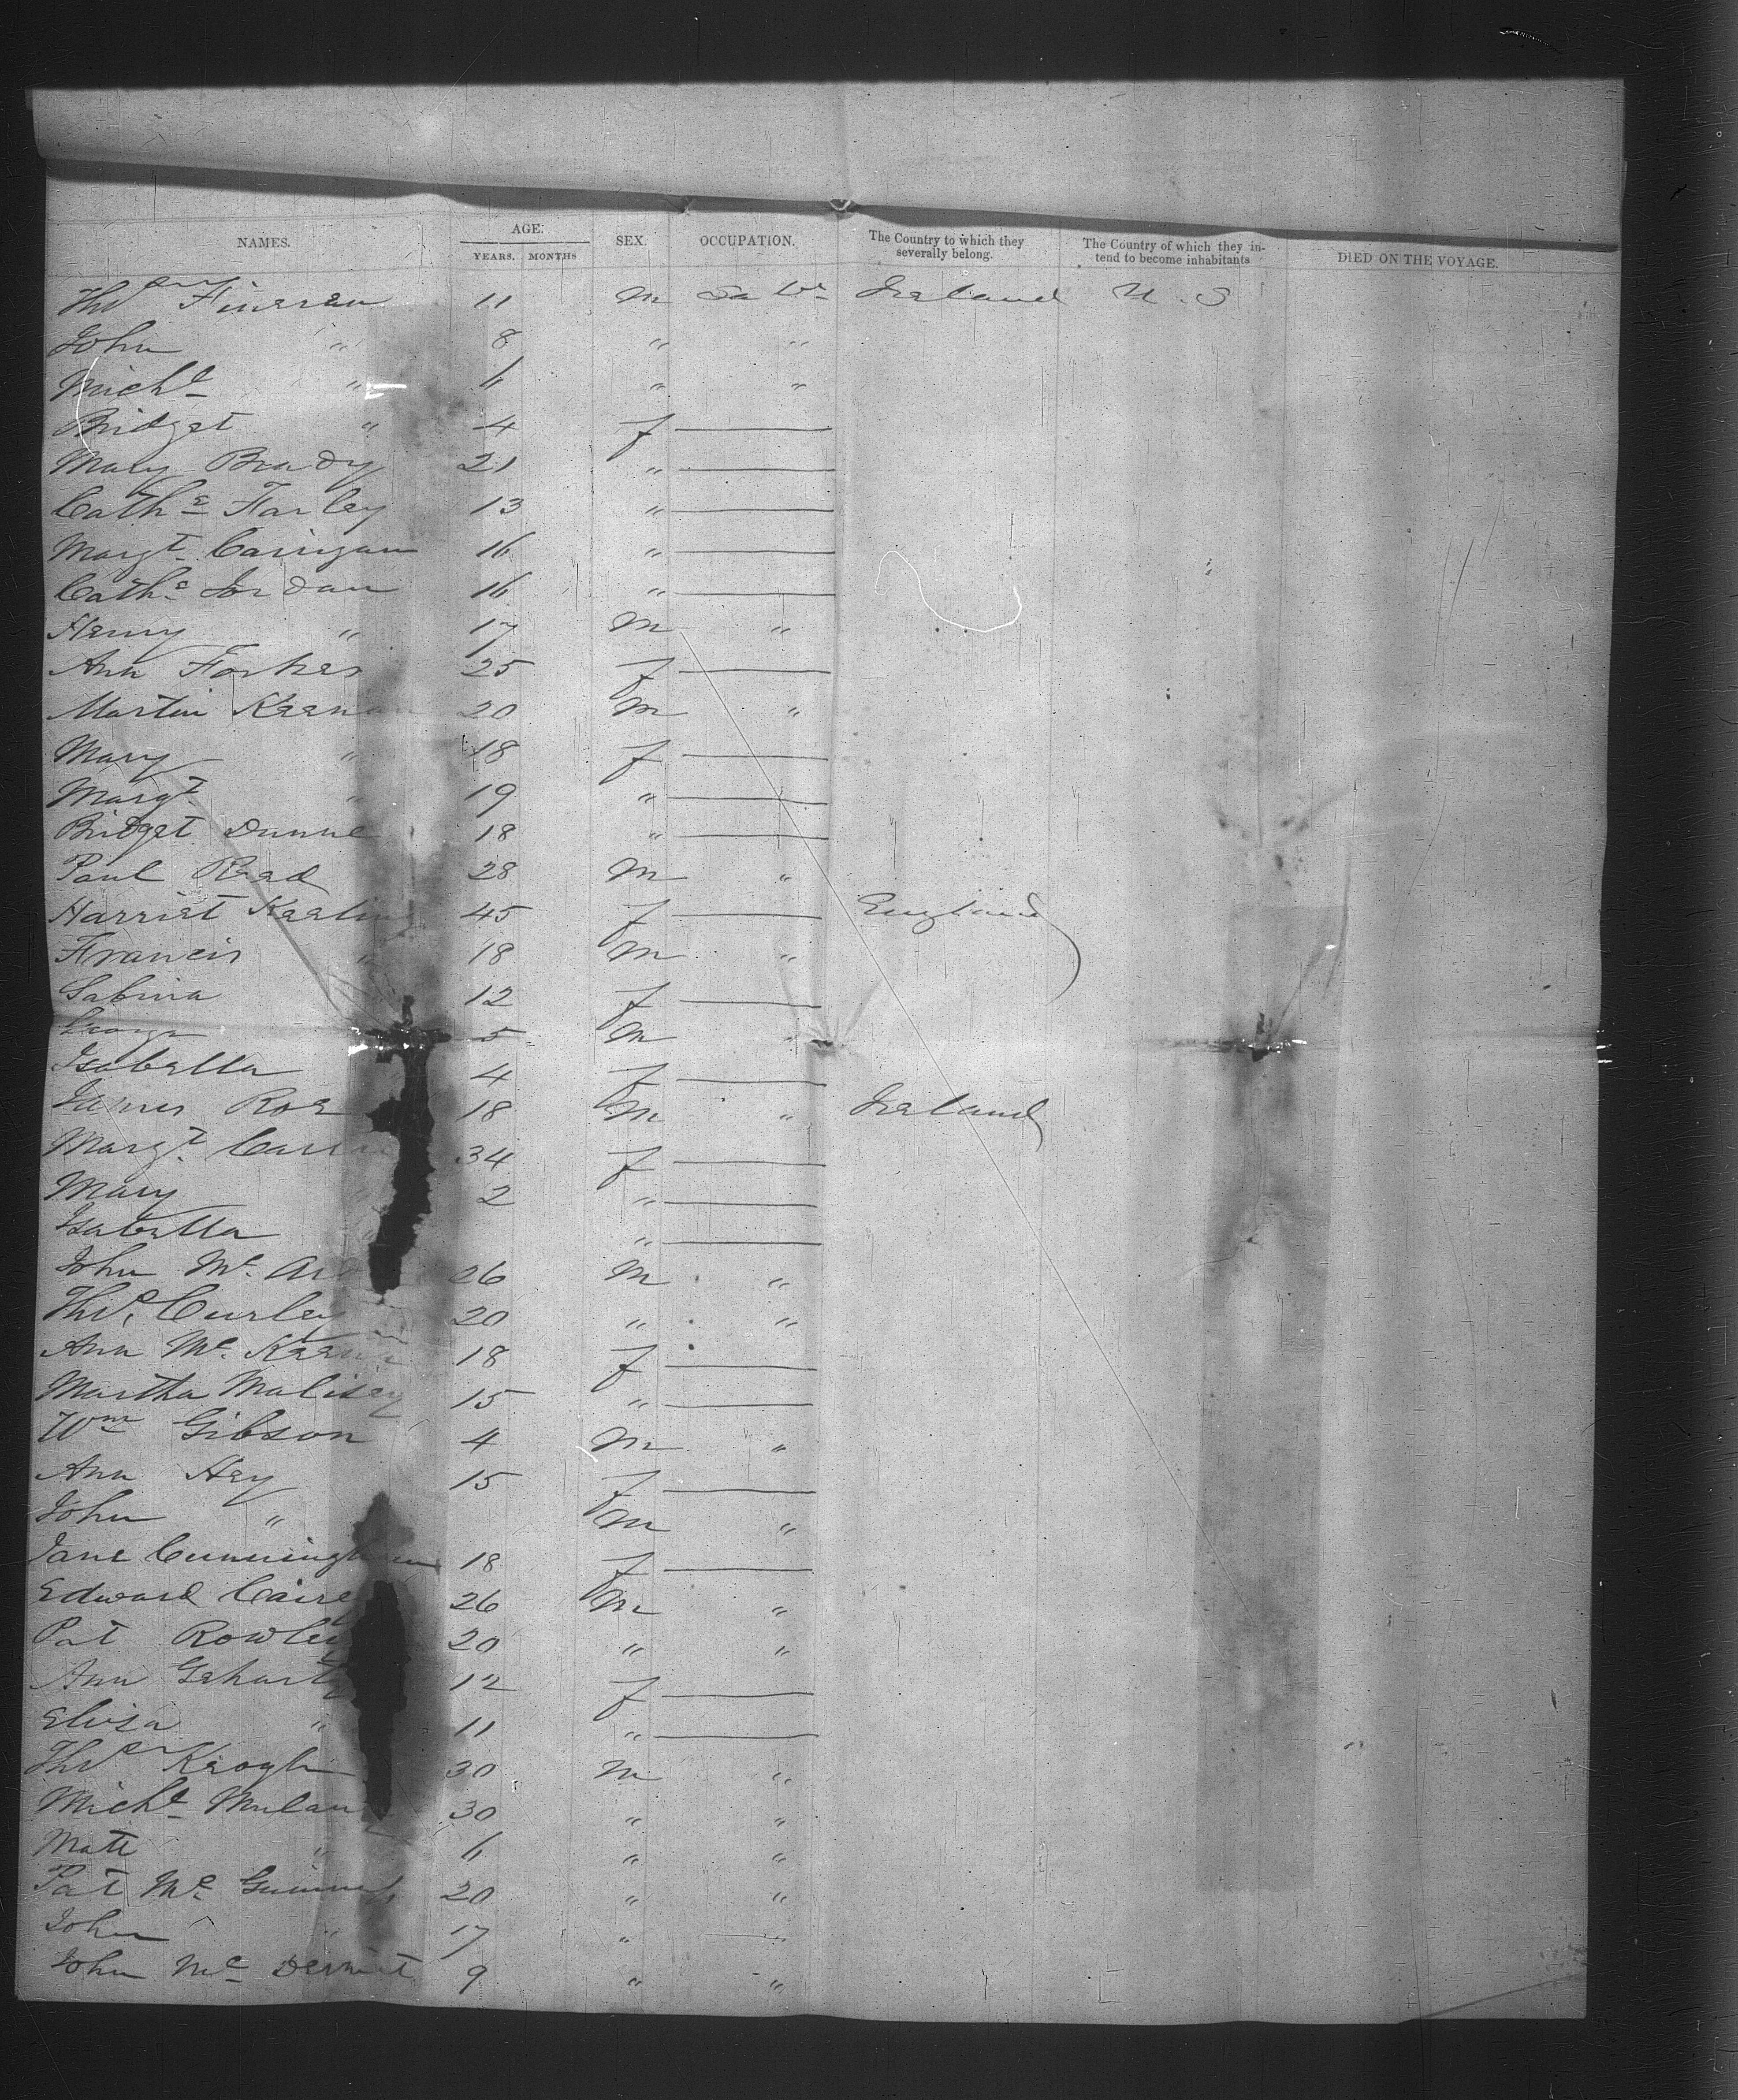 NAMES. AGE: SEX. OCCUPATION. The Country to which they severally belong. The Country of which they intend to become inhabitants DIED ON THE VOYAGE.
YEARS. MONTHS
Thos Fineran 11 m Labr Ireland U.S
John " 8 " "
Michl " 6 " "
Bridget " 4 f
Mary Brady 21 "
Cathe Farley 13 "
Margt Carrigan 16 "
Cathe Jordan 16 "
Henry " 17 m "
Ann Forbes 25 f
Martin Keenan 20 m "
Mary " 18 f
Margt " 19 "
Bridget Dunne 18 "
Paul Read 28 m "
Harriet Keeling 45 f England
Francis " 18 m "
Sabina 12 f
George 5 m "
Isabella 4 f
James Roe 18 m " Ireland
Margt 34 f
Mary " 2 "
Isabella " "
John Mc 26 m "
Thos Curley 20 " "
Ann Mc 18 f
Martha 15 "
Wm Gibson 4 m "
Ann Hey 15 f
John " m "
Jane Cunningham 18 f
Edward 26 m "
Pat Rowley 20 " "
Ann 12 f
Eliza " 11 "
Thos Keogh 30 m "
Michl 30 " "
Matt " 6 " "
Pat Mc 20 " "
John " 17 " "
John Mc Dermot 9 " "